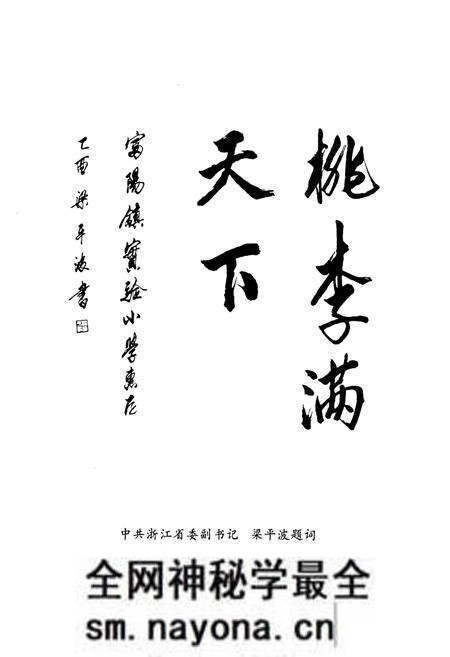 桃李满
天下
富陽鎮實验小學惠存
乙酉梁平波書
中共浙江省委副书记 梁平波题词
全网神秘学最全
sm.nayona.cn